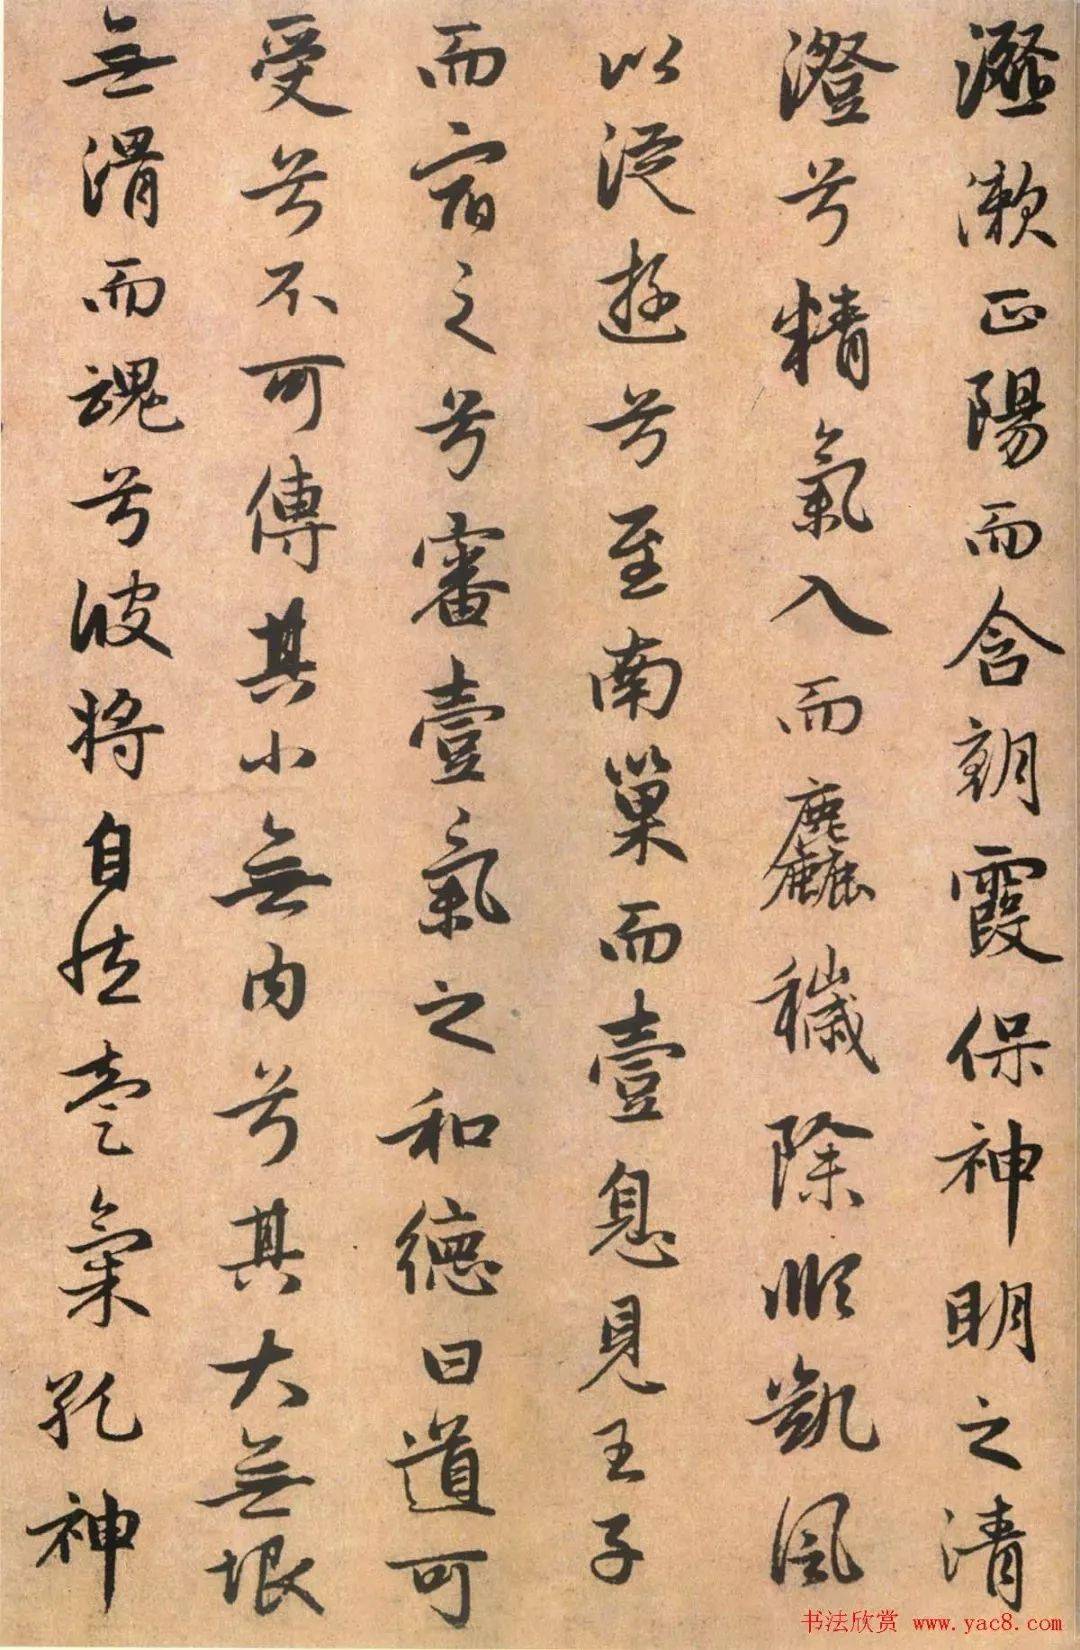 瀣漱正陽而含朝霞保神明之清
澄兮精氣入而麤穢除順凱風
以從遊兮至南巢而壹息見王子
而宿之兮審壹氣之和德曰道可
受兮不可傳其小無內兮其大無垠
無滑而魂兮彼將自然壹氣孔神
书法欣赏 www.yac8.com